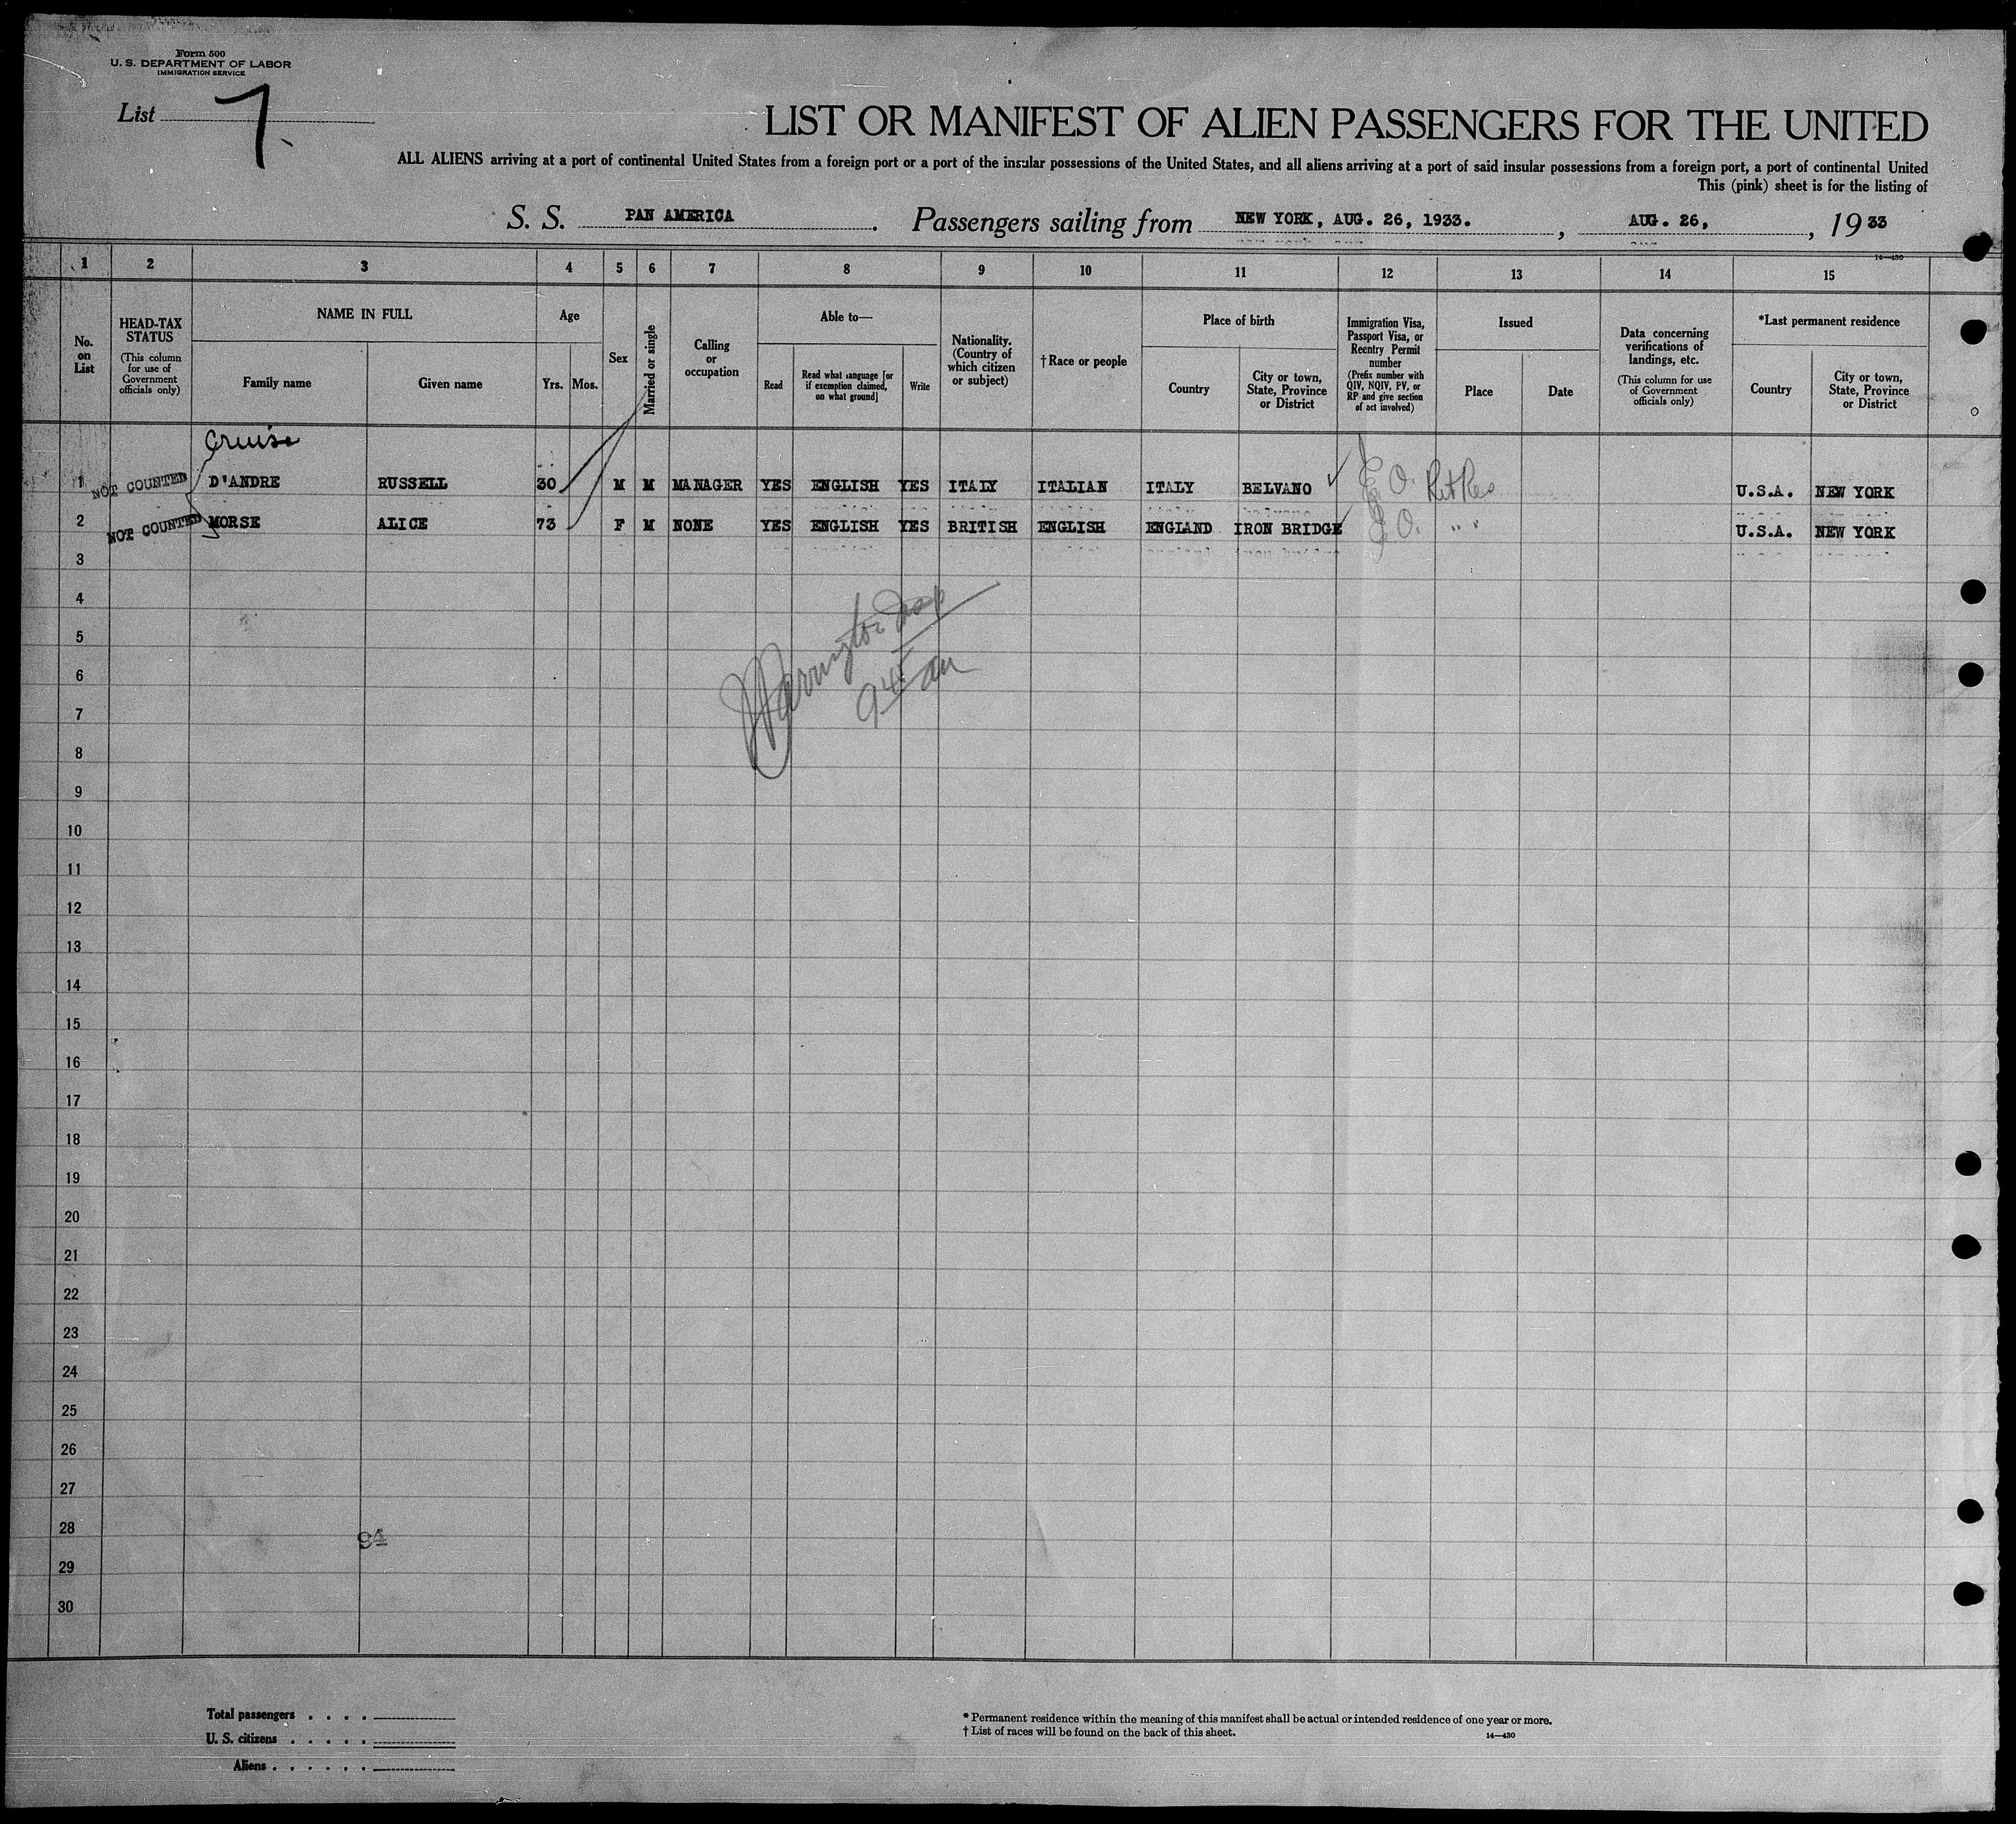 Form 500
U. S. DEPARTMENT OF LABOR
IMMIGRATION SERVICE
List 7
LIST OR MANIFEST OF ALIEN PASSENGERS FOR THE UNITED
ALL ALIENS arriving at a port of continental United States from a foreign port or a port of the insular possessions of the United States, and all aliens arriving at a port of said insular possessions from a foreign port, a port of continental United
This (pink) sheet is for the listing of
S. S. PAN AMERICA. Passengers sailing from NEW YORK, AUG. 26, 1933. , AUG. 26, , 19 33
14—430
1 2 3 4 5 6 7 8 9 10 11 12 13 14 15
No. on List
HEAD-TAX STATUS
(This column for use of Government officials only)
NAME IN FULL
Family name
Given name
Age
Yrs. Mos.
Sex
Married or single
Calling or occupation
Able to—
Read
Read what language [or if exemption claimed, on what ground]
Write
Nationality. (Country of which citizen or subject)
† Race or people
Place of birth
Country
City or town, State, Province or District
Immigration Visa, Passport Visa, or Reentry Permit number
(Prefix number with QIV, NQIV, PV, or RP and give section of act involved)
Issued
Place
Date
Data concerning verifications of landings, etc.
(This column for use of Government officials only)
*Last permanent residence
Country
City or town, State, Province or District
Cruise
1 NOT COUNTED D'ANDRE RUSSELL 30 M M MANAGER YES ENGLISH YES ITALY ITALIAN ITALY BELVANO U.S.A. NEW YORK
2 NOT COUNTED MORSE ALICE 73 F M NONE YES ENGLISH YES BRITISH ENGLISH ENGLAND IRON BRIDGE U.S.A. NEW YORK
3
4
5
6
7
8
9
10
11
12
13
14
15
16
17
18
19
20
21
22
23
24
25
26
27
28
94
29
30
Total passengers . . . .
U. S. citizens . . . . .
Aliens . . . . . .
* Permanent residence within the meaning of this manifest shall be actual or intended residence of one year or more.
† List of races will be found on the back of this sheet.
14—430